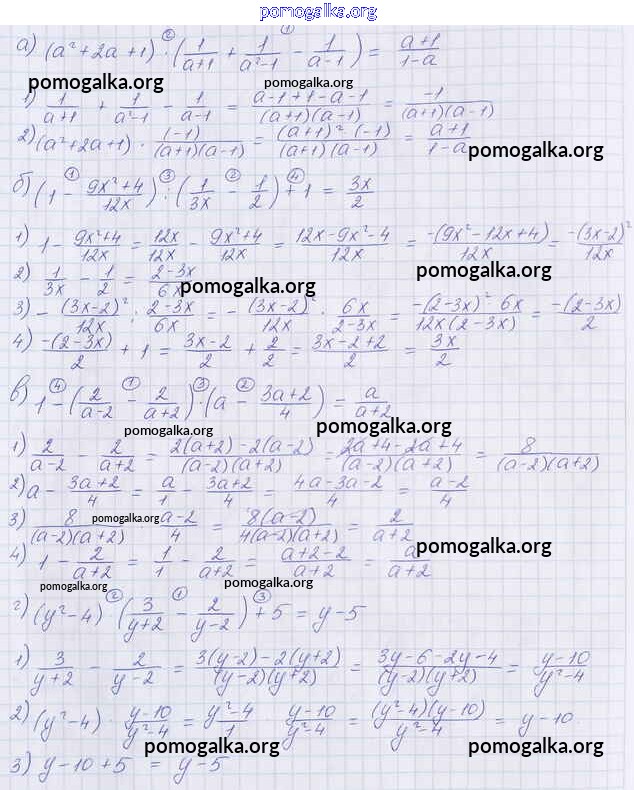 pomogalka.org
а) (a²+2a+1)·(1/(a+1) + 1/(a²-1) - 1/(a-1)) = (a+1)/(1-a)
② ①
pomogalka.org pomogalka.org
1) 1/(a+1) + 1/(a²-1) - 1/(a-1) = (a-1+1-a-1)/((a+1)(a-1)) = -1/((a+1)(a-1))
2) (a²+2a+1)·(-1)/((a+1)(a-1)) = (a+1)²(-1)/((a+1)(a-1)) = (a+1)/(1-a)
pomogalka.org
б) (1 - (9x²+4)/12x) : (1/3x - 1/2) + 1 = 3x/2
① ③ ② ④
1) 1 - (9x²+4)/12x = 12x/12x - (9x²+4)/12x = (12x-9x²-4)/12x = -(9x²-12x+4)/12x = -(3x-2)²/12x
2) 1/3x - 1/2 = (2-3x)/6x
pomogalka.org pomogalka.org
3) -(3x-2)²/12x : (2-3x)/6x = -(3x-2)²/12x · 6x/(2-3x) = -(2-3x)²·6x/(12x(2-3x)) = -(2-3x)/2
4) -(2-3x)/2 + 1 = (3x-2)/2 + 2/2 = (3x-2+2)/2 = 3x/2
в) 1 - (2/(a-2) - 2/(a+2))·(a - (3a+2)/4) = a/(a+2)
④ ① ③ ②
pomogalka.org pomogalka.org
1) 2/(a-2) - 2/(a+2) = (2(a+2)-2(a-2))/((a-2)(a+2)) = (2a+4-2a+4)/((a-2)(a+2)) = 8/((a-2)(a+2))
2) a - (3a+2)/4 = a/1 - (3a+2)/4 = (4a-3a-2)/4 = (a-2)/4
3) 8/((a-2)(a+2)) pomogalka.org (a-2)/4 = 8(a-2)/(4(a-2)(a+2)) = 2/(a+2)
pomogalka.org
4) 1 - 2/(a+2) = 1/1 - 2/(a+2) = (a+2-2)/(a+2) = a/(a+2)
pomogalka.org pomogalka.org
г) (y²-4) (3/(y+2) - 2/(y-2)) + 5 = y-5
② ① ③
1) 3/(y+2) - 2/(y-2) = (3(y-2)-2(y+2))/((y-2)(y+2)) = (3y-6-2y-4)/((y-2)(y+2)) = (y-10)/(y²-4)
2) (y²-4)·(y-10)/(y²-4) = (y²-4)/1 · (y-10)/(y²-4) = (y²-4)(y-10)/(y²-4) = y-10
pomogalka.org pomogalka.org
3) y-10+5 = y-5